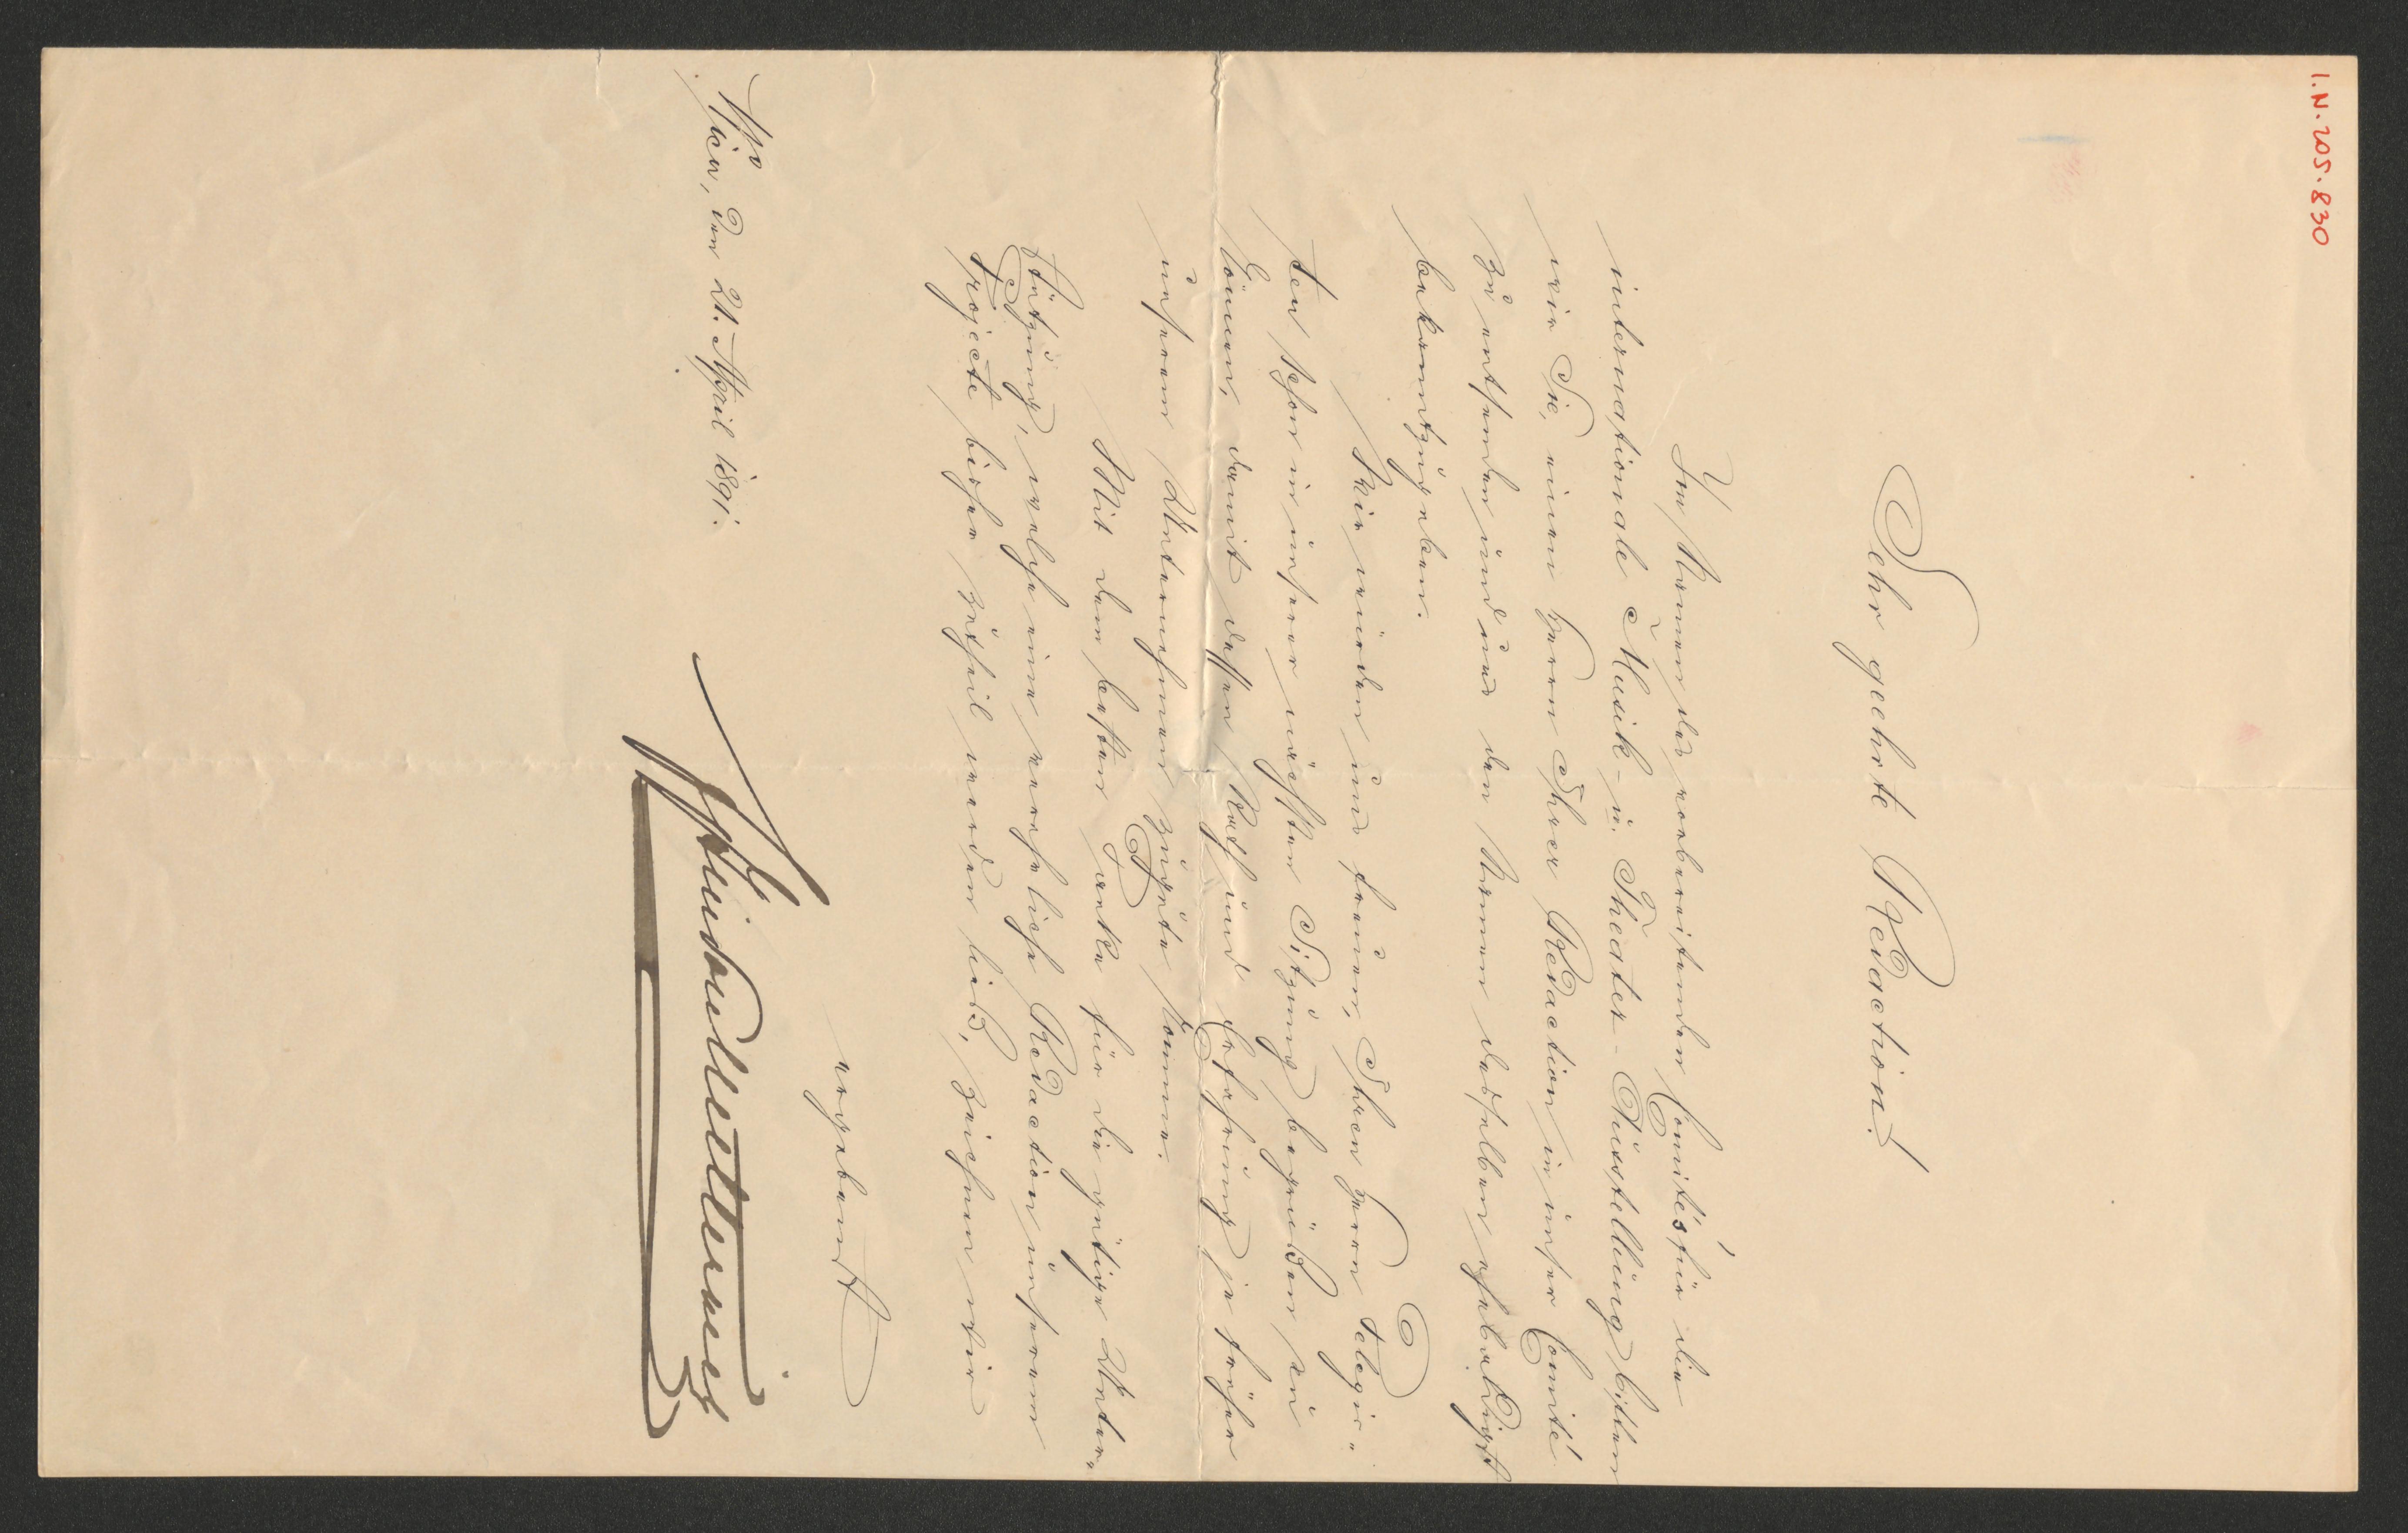 I.N. 205.830
Sehr geehrte Redaction!
Im Namen des vorbereitenden Comité's für die
internationale Musik- u. Theater-Ausstellung bitten
wir Sie, einen Herrn Ihrer Redaction in unser Comité
zu entsenden und uns den Namen desselben ehebaldigst
bekanntzugeben.
Wir würden uns freuen, Ihren Herrn Delegir-
ten schon in unserer nächsten Sitzung begrüßen zu
können, damit dessen Rath und Erfahrung je früher
unserem Unternehmen zugute komme.
Mit dem besten Danke für die gütige Unter-
stützung, welche eine verehrliche Redaction unserem
Projecte bisher zutheil werden ließ, zeichnen wir
ergebenst
Wien, den 21. April 1891.